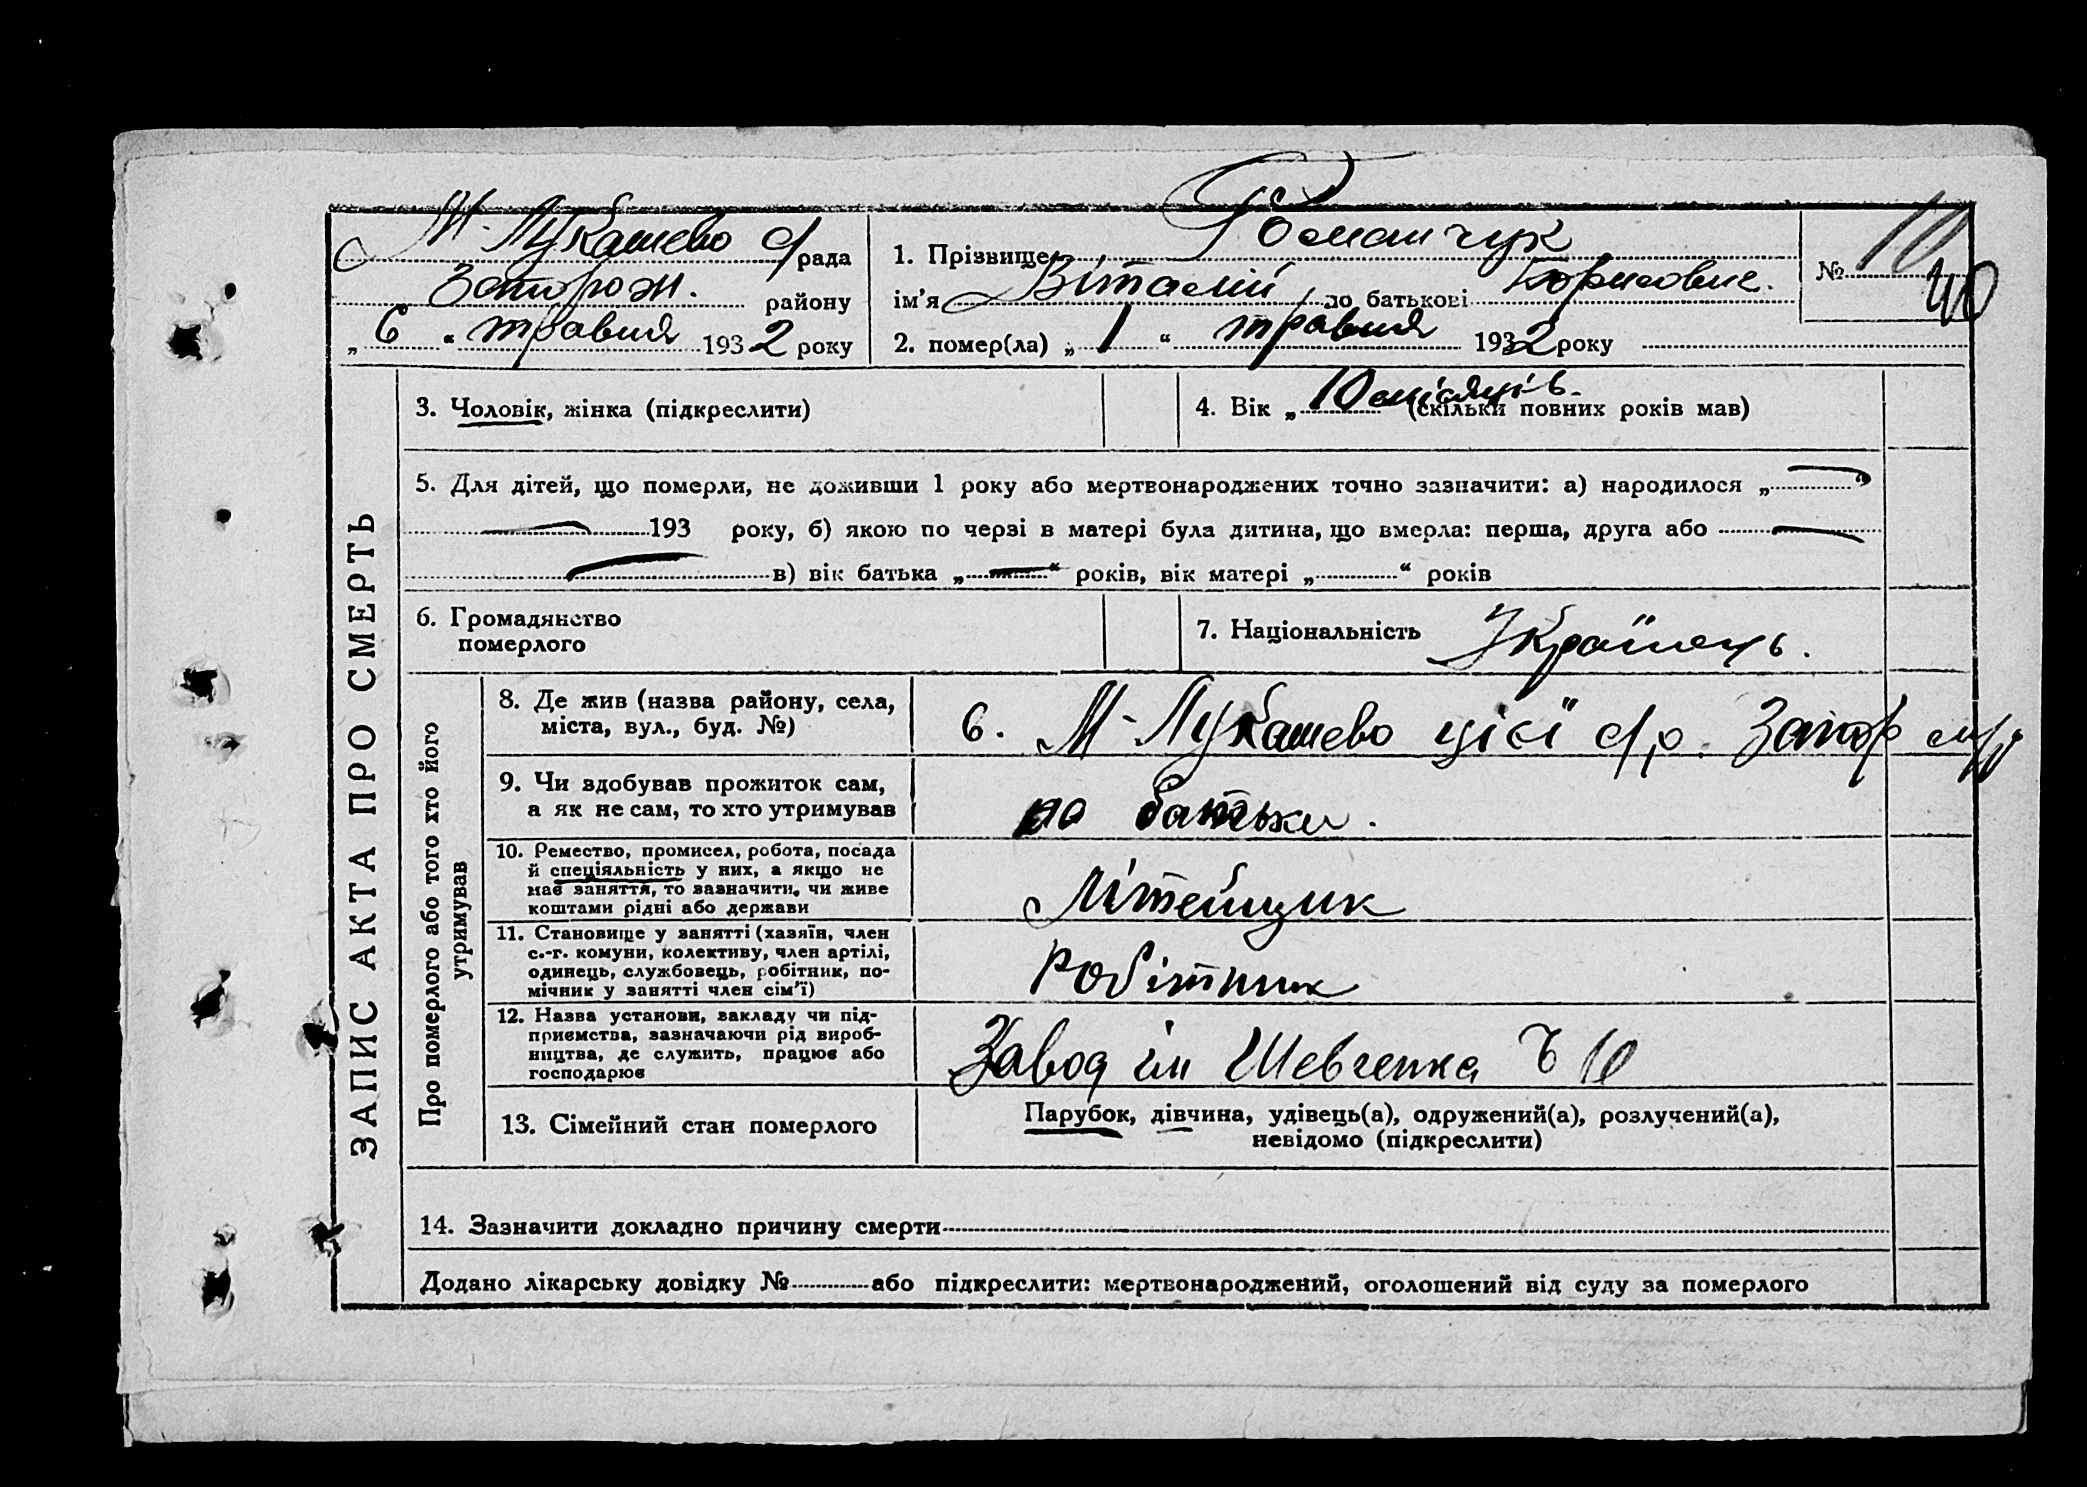 М-Лукашево с/рада
Запорож. району
„ 6 “ травня 1932 року
1. Прізвище Романчук
ім’я Віталій по батькові Борисович.
2. помер(ла) „ 1 “ травня 1932 року
№ 10
40
ЗАПИС АКТА ПРО СМЕРТЬ
3. Чоловік, жінка (підкреслити)
4. Вік „ 10 місяців. (скільки повних років мав)
5. Для дітей, що померли, не доживши 1 року або мертвонароджених точно зазначити: а) народилося „ “
193 року, б) якою по черзі в матері була дитина, що вмерла: перша, друга або
в) вік батька „ “ років, вік матері „ “ років
6. Громадянство
померлого
7. Національність Українець.
Про померлого або того хто його
утримував
8. Де жив (назва району, села,
міста, вул., буд. №)
с. М-Лукашево цієї с/р. Запор м/р
9. Чи здобував прожиток сам,
а як не сам, то хто утримував
на батьки.
10. Ремество, промисел, робота, посада
й спеціяльність у них, а якщо не
має заняття, то зазначити, чи живе
коштами рідні або держави
Літейщик
11. Становище у занятті (хазяїн, член
с.-г. комуни, колективу, член артілі,
одинець, службовець, робітник, по-
мічник у занятті член сім’ї)
Робітник
12. Назва установи, закладу чи під-
приємства, зазначаючи рід вироб-
ництва, де служить, працює або
господарює
Завод ім Шевченка Ч 10
13. Сімейний стан померлого
Парубок, дівчина, удівець(а), одружений(а), розлучений(а),
невідомо (підкреслити)
14. Зазначити докладно причину смерти
Додано лікарську довідку № або підкреслити: мертвонароджений, оголошений від суду за померлого